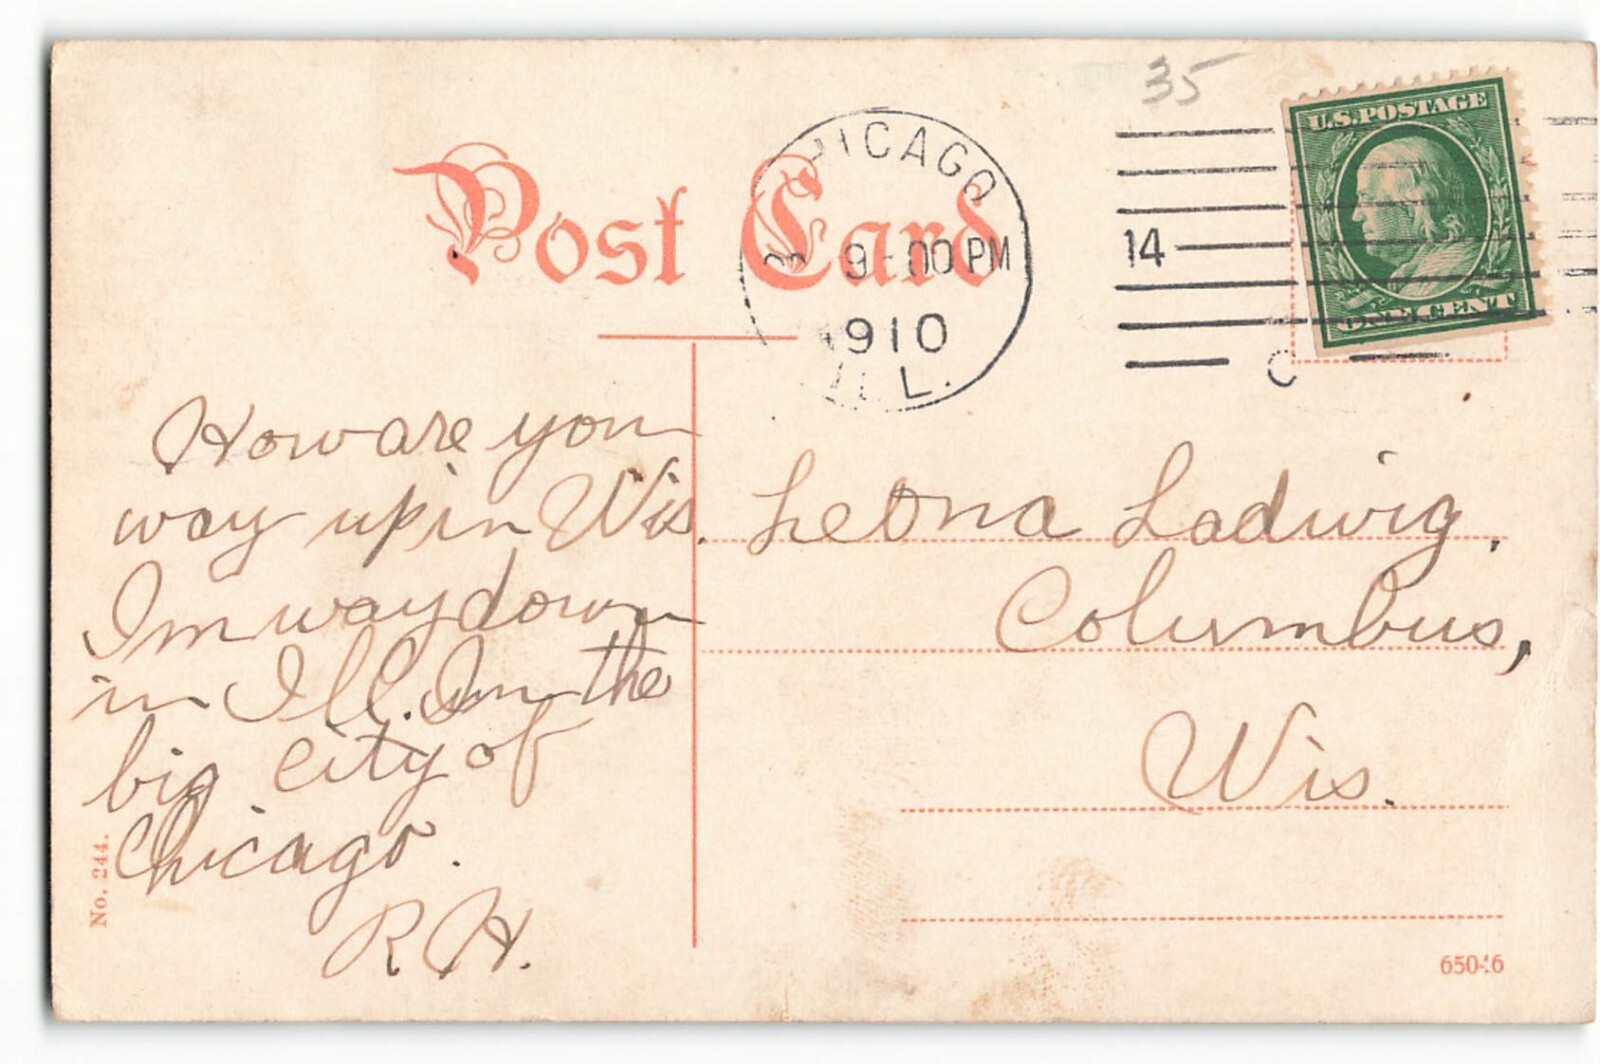 35
U.S.POSTAGE
ONE CENT
CHICAGO
9-00 PM
1910
ILL.
14
C
Post Card
How are you
way up in Wis.
Im way down
in Ill. Im the
big city of
Chicago.
R H.
Leona Ladwig,
Columbus,
Wis.
No. 244.